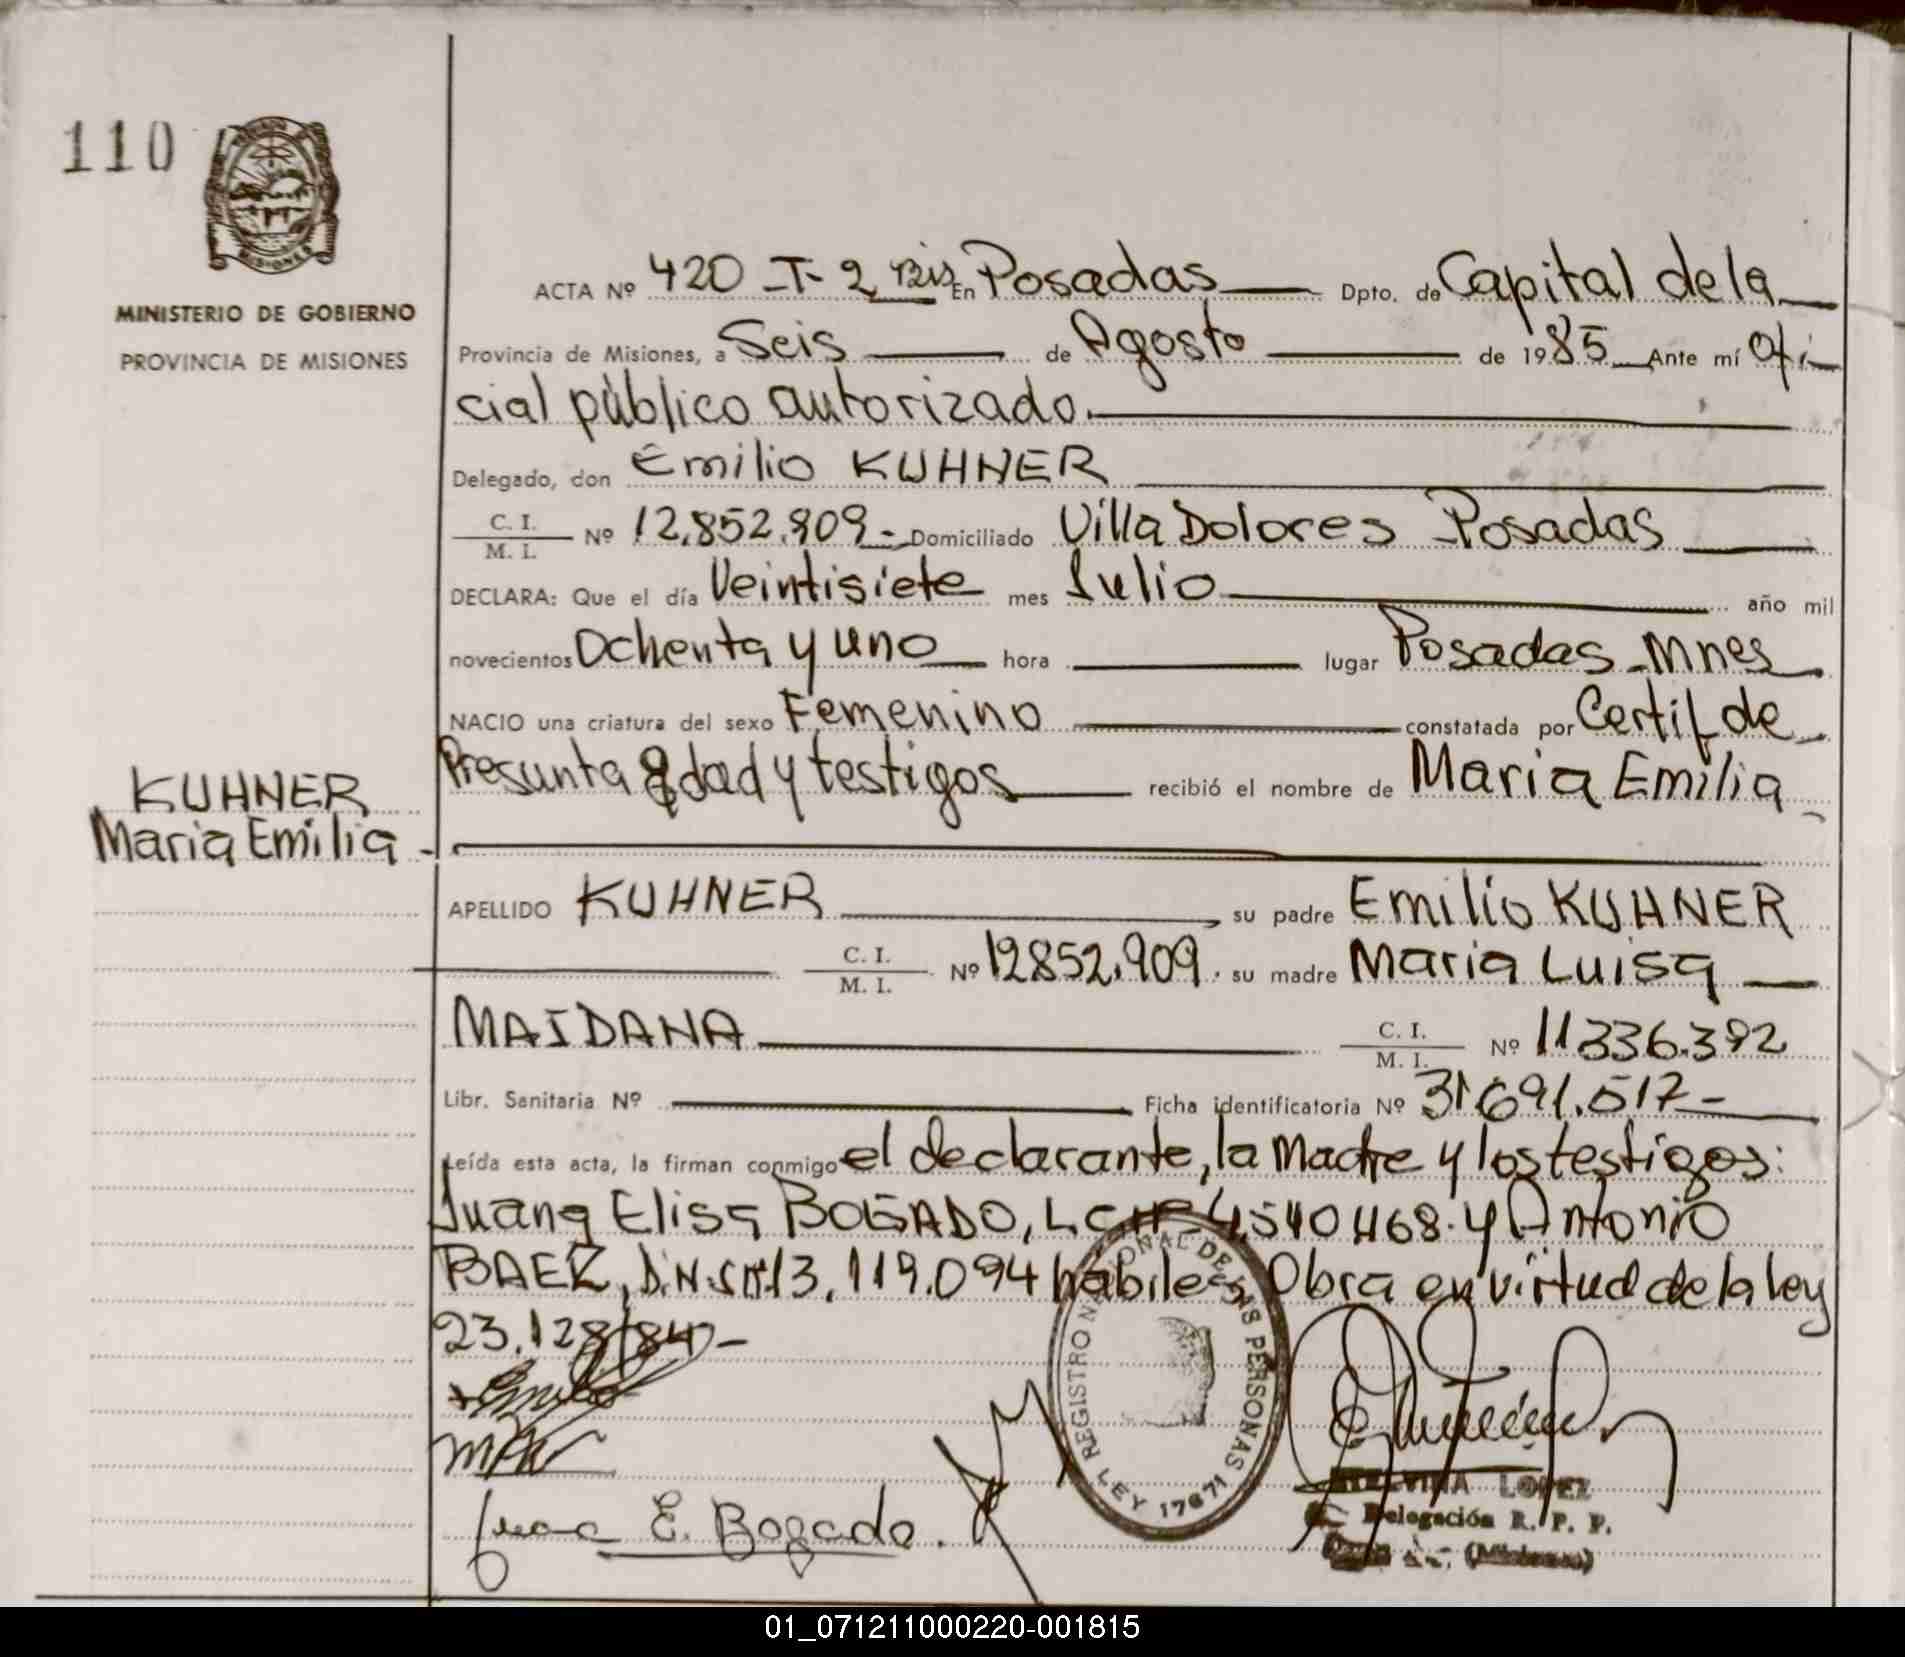 110
MISIONES
MINISTERIO DE GOBIERNO
PROVINCIA DE MISIONES
ACTA Nº 420 - T- 2 Bis En Posadas Dpto. de Capital de la
Provincia de Misiones, a Seis de Agosto de 1985 Ante mí Ofi-
cial público autorizado.
Delegado, don Emilio KUHNER
C. I.
M. I. Nº 12.852.909.- Domiciliado Villa Dolores - Posadas
DECLARA: Que el día Veintisiete mes Julio año mil
novecientos Ochenta y uno hora lugar Posadas - Mnes
NACIO una criatura del sexo Femenino constatada por Certif de
Presunta Edad y testigos recibió el nombre de Maria Emilia
KUHNER
Maria Emilia -
APELLIDO KUHNER, su padre Emilio KUHNER
C. I.
M. I. Nº 12852.909. su madre Maria Luisa
MAIDANA C. I.
M. I. Nº 11336.392
Libr. Sanitaria Nº Ficha identificatoria Nº 31.691.517-
Leída esta acta, la firman conmigo el declarante, la Madre y los testigos:
Juana Elisa BOGADO, L.C.Nº 4.540.468. y Antonio
BAEZ, D.N.I.Nº13.119.094 habiles, Obra en virtud de la ley
23.128/84)-
Juana E. Bogado.
REGISTRO NACIONAL DE LAS PERSONAS
LEY 17671
LOPEZ
Delegación R. P. P.
(Misiones)
01_071211000220-001815